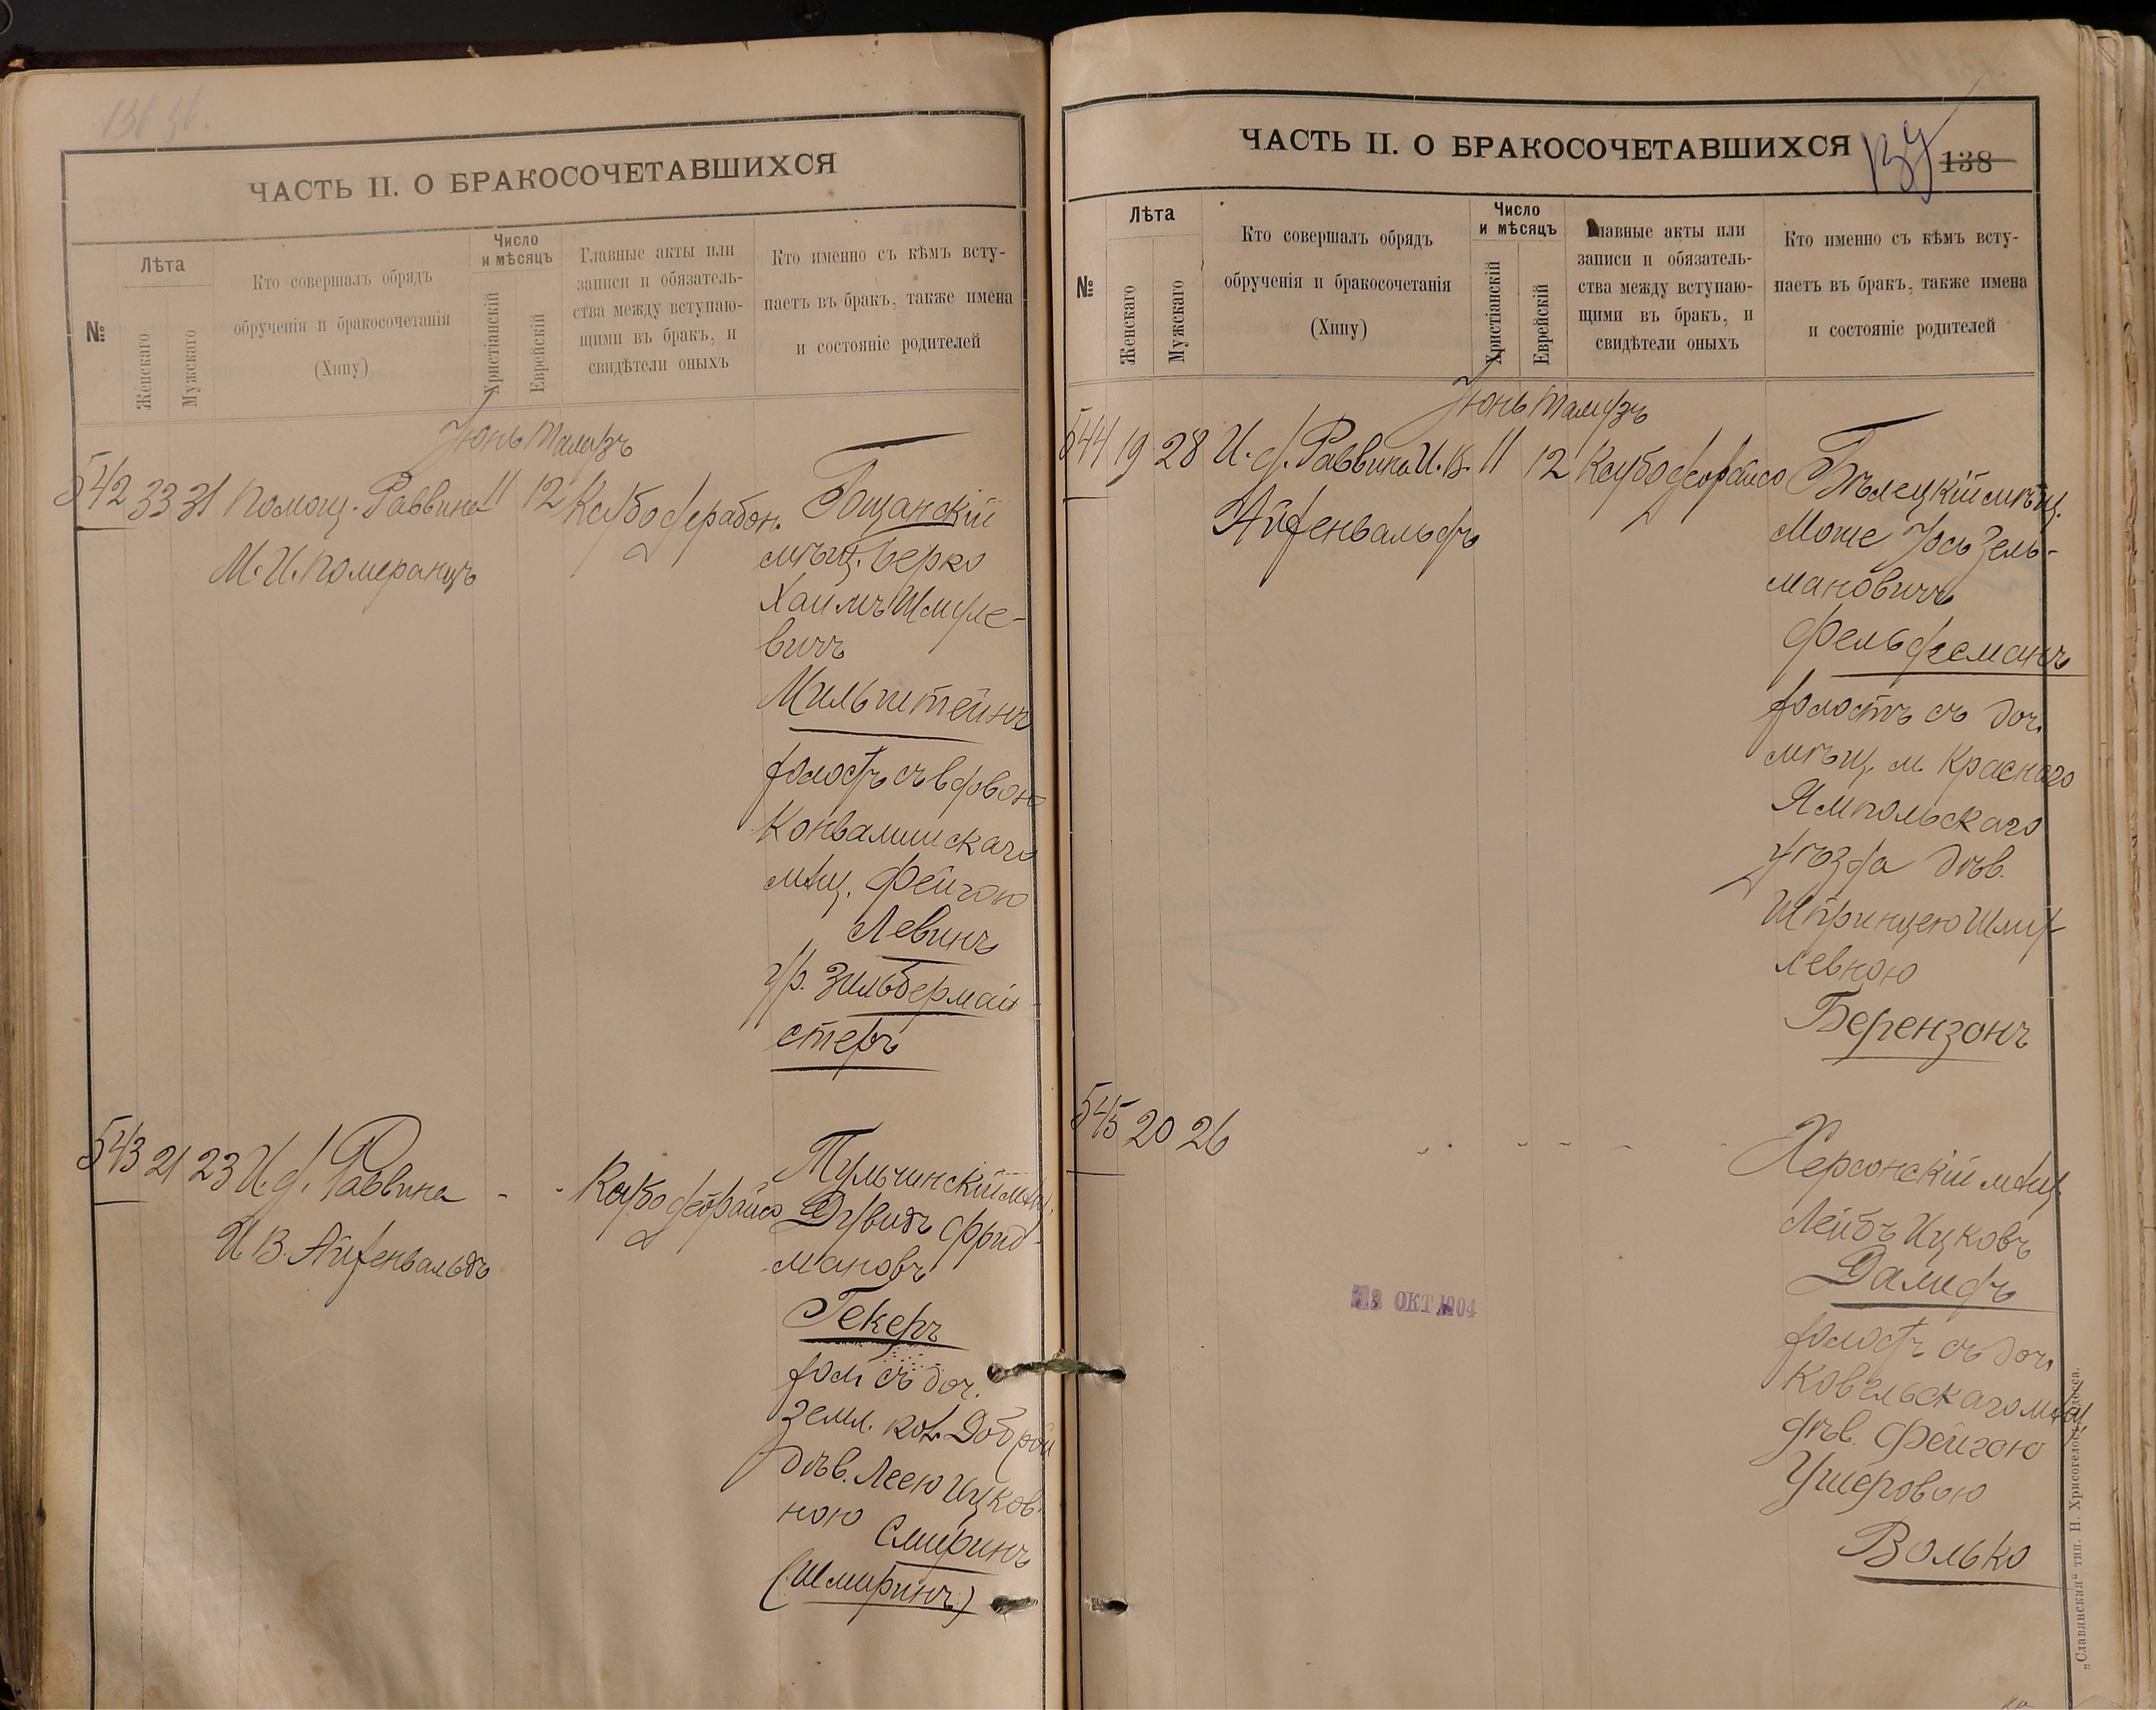 ЧАСТЬ II. О БРАКОСОЧЕТАВШИХСЯ
№
Лѣта
Женскаго
Мужскаго
Кто совершалъ обрядъ
обрученія и бракосочетанія
(Хипу)
Число
и мѣсяцъ
Христіанскій
Еврейскій
Главные акты или
записи и обязатель-
ства между вступаю-
щими въ бракъ, и
свидѣтели оныхъ
Кто именно съ кѣмъ всту-
паетъ въ бракъ, также имена
и состояніе родителей
Іюнь Тамузъ
542 33 31 Помощ. Раввина 11 12
М. И. Померанцъ
Гощанскій
мѣщ. Берко
Хаимъ Шмуле-
вичъ
Мильштейнъ
холостъ съ вдовою
мѣщ. Фейгою
Левинъ
ур. Зильбермай-
стеръ
543 21 23 И. д. Раввина - -
И В. Айзенвальдъ
Тульчинскій мѣщ.
Дувидъ Фрид-
мановъ
Гекеръ
хол. съ доч.
земл. кол. Доброй
дѣв. Леею Ицков-
ною
Смиринъ
(Шмиринъ)
ЧАСТЬ II. О БРАКОСОЧЕТАВШИХСЯ
138
№
Лѣта
Женскаго
Мужскаго
Кто совершалъ обрядъ
обрученія и бракосочетанія
(Хипу)
Число
и мѣсяцъ
Христіанскій
Еврейскій
Главные акты или
записи и обязатель-
ства между вступаю-
щими въ бракъ, и
свидѣтели оныхъ
Кто именно съ кѣмъ всту-
паетъ въ бракъ, также имена
и состояніе родителей
Іюнь Тамузъ
544 19 28 И. д. Раввина И. В. 11 12
Айзенвальдъ
Бѣлецкій мѣщ.
Моше Іось Зель-
мановичъ
Фельдсманъ
холостъ съ доч.
мѣщ. м. Краснаго
Ямпольскаго
уѣзда дѣв.
Шпринцею Шму-
левною
Берензонъ
545 20 26
Херсонскій мѣщ.
Лейбъ Ицковъ
холостъ съ доч.
Ковельскаго мѣщ.
дѣв. Фейгою
Ушеровою
Волько
ОКТ 1904
„Славянская“ тип. Н. Хрисогелосъ, Одесса.